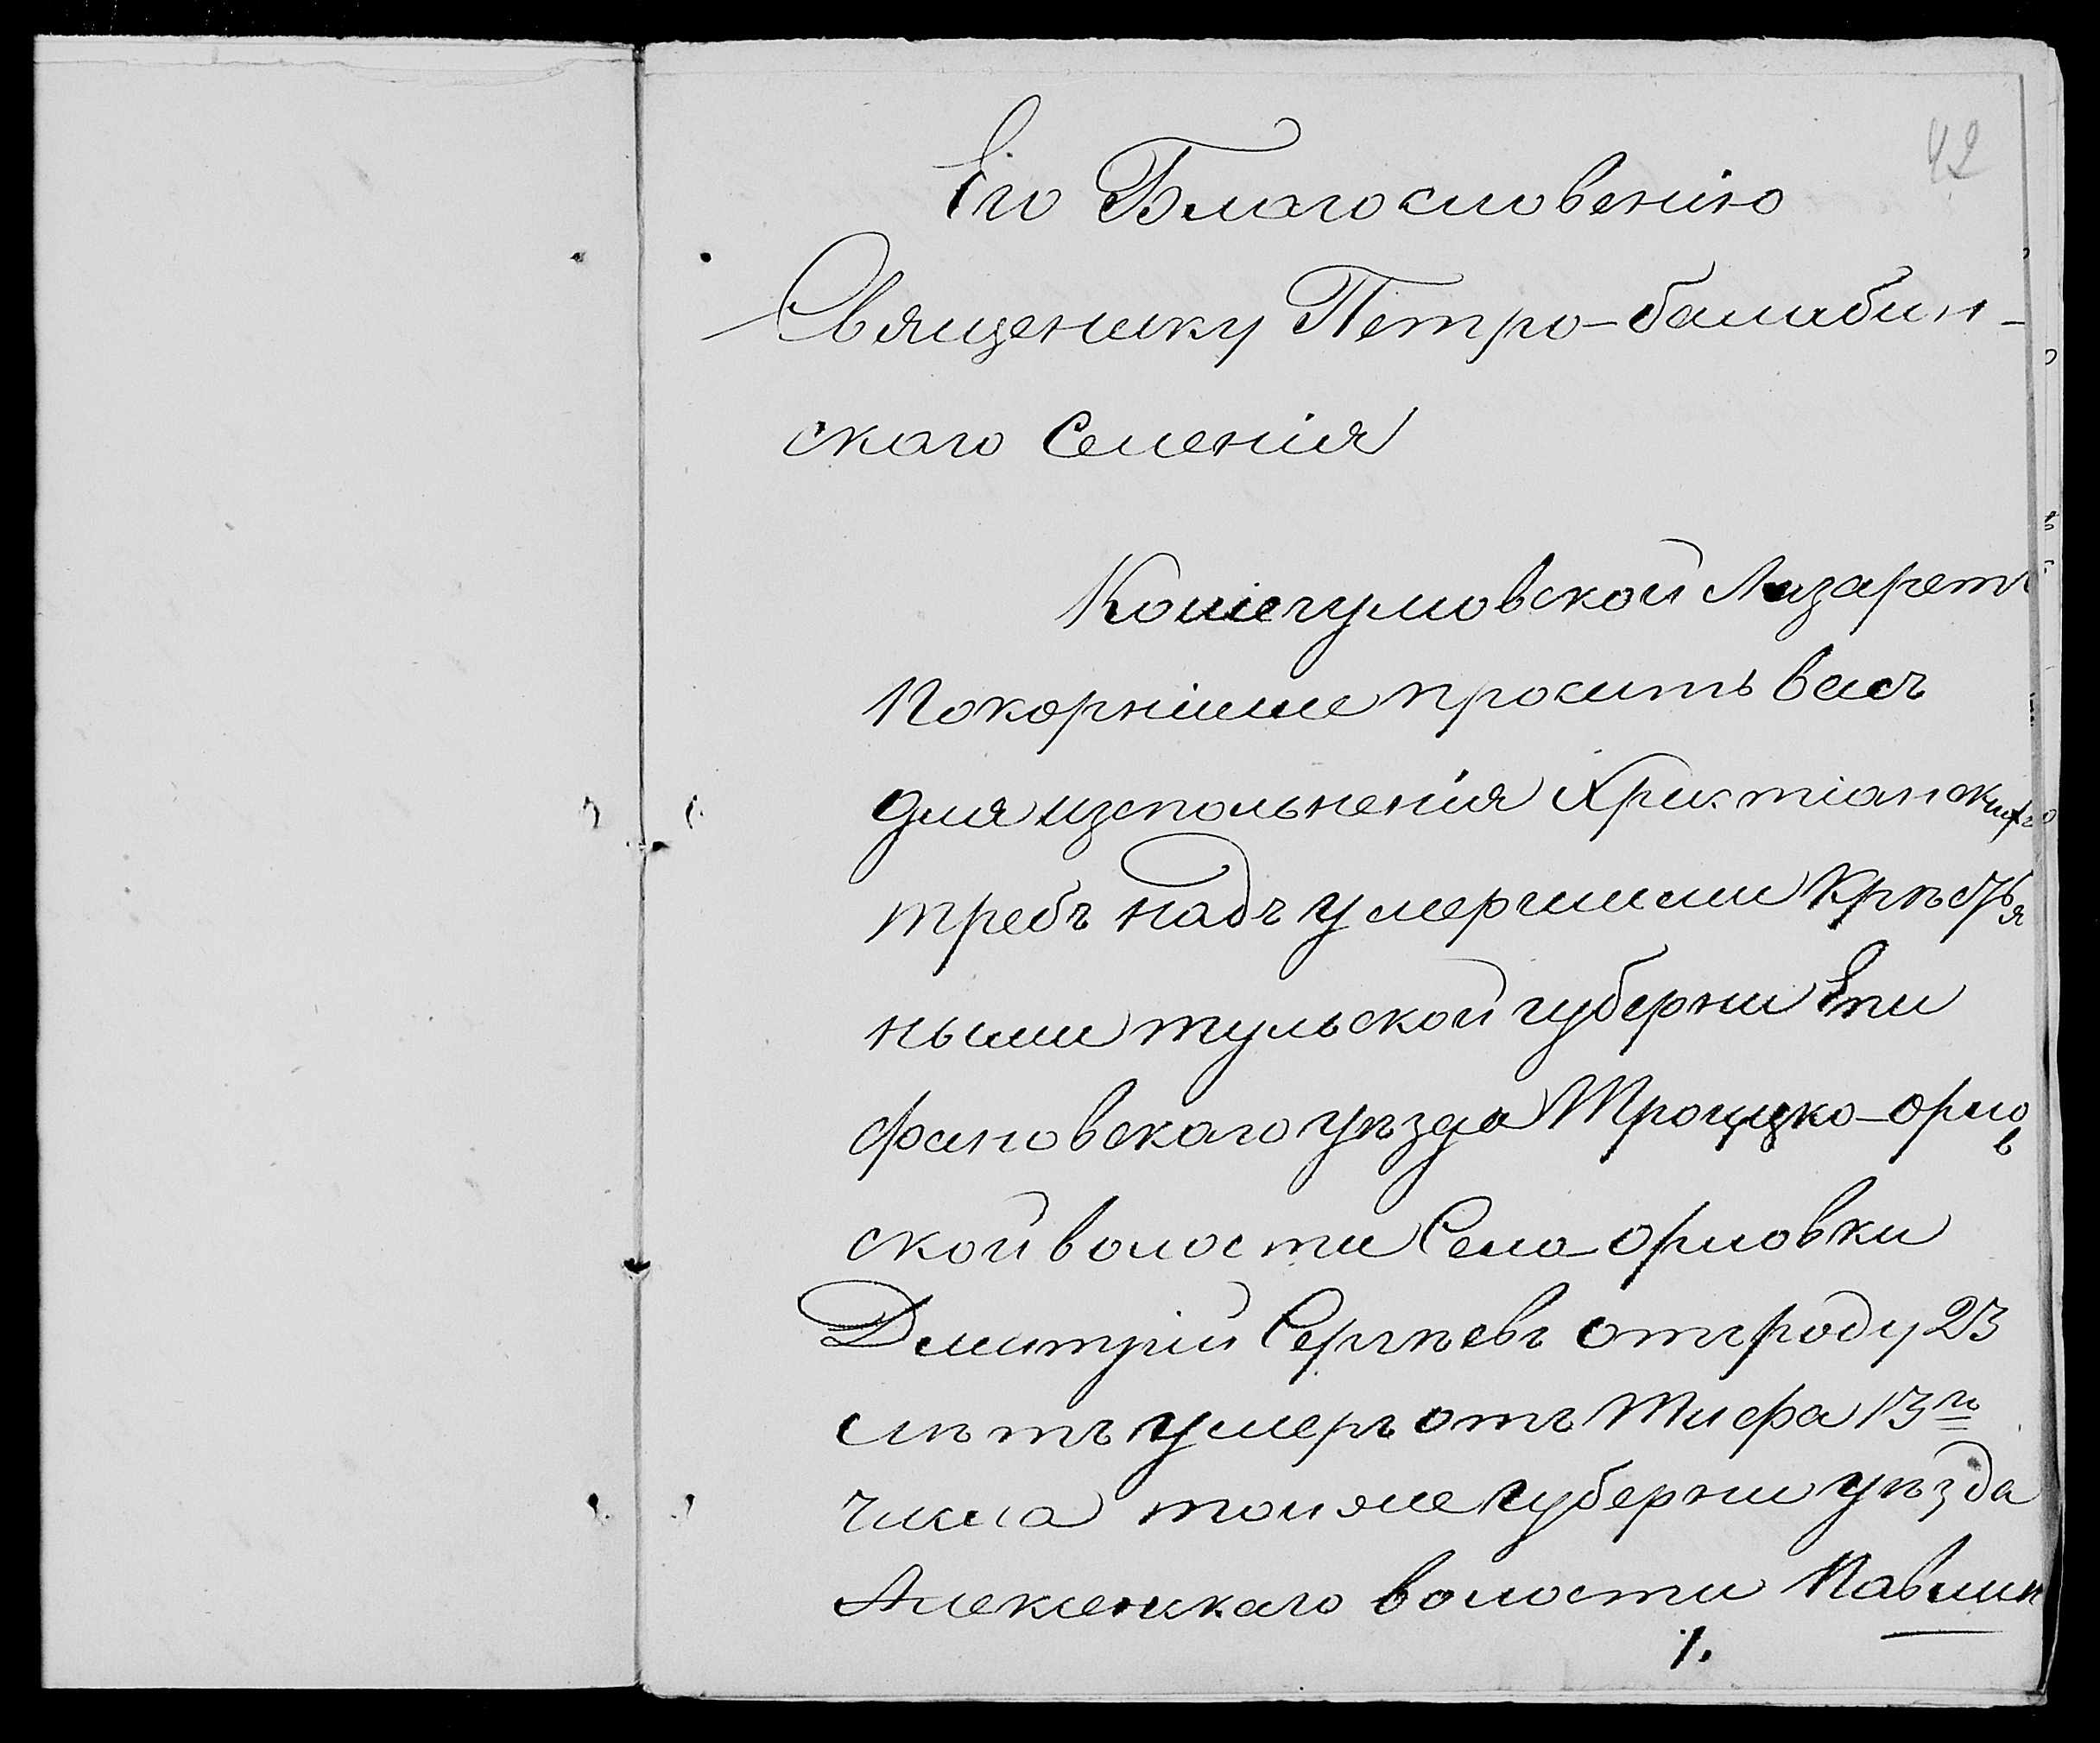 42
Его Благословенiю
Священику Петро-балабин-
скаго Селенiя
Кошегумовской Лазаретъ
Покорнiише проситъ васъ
для изспольненiя Христiанских
требъ надъ умершими Крѣстья
ными тульской губерни Епи
фановскаго уѣзда Троицко-орло
в
ской волости Село-орловки
Дмитрiй Сергѣевъ отъ роду 23
лѣтъ умеръ отъ Тифа 13го
числа той же губерни уѣзда
Алексенскаго волости Павшин
1.